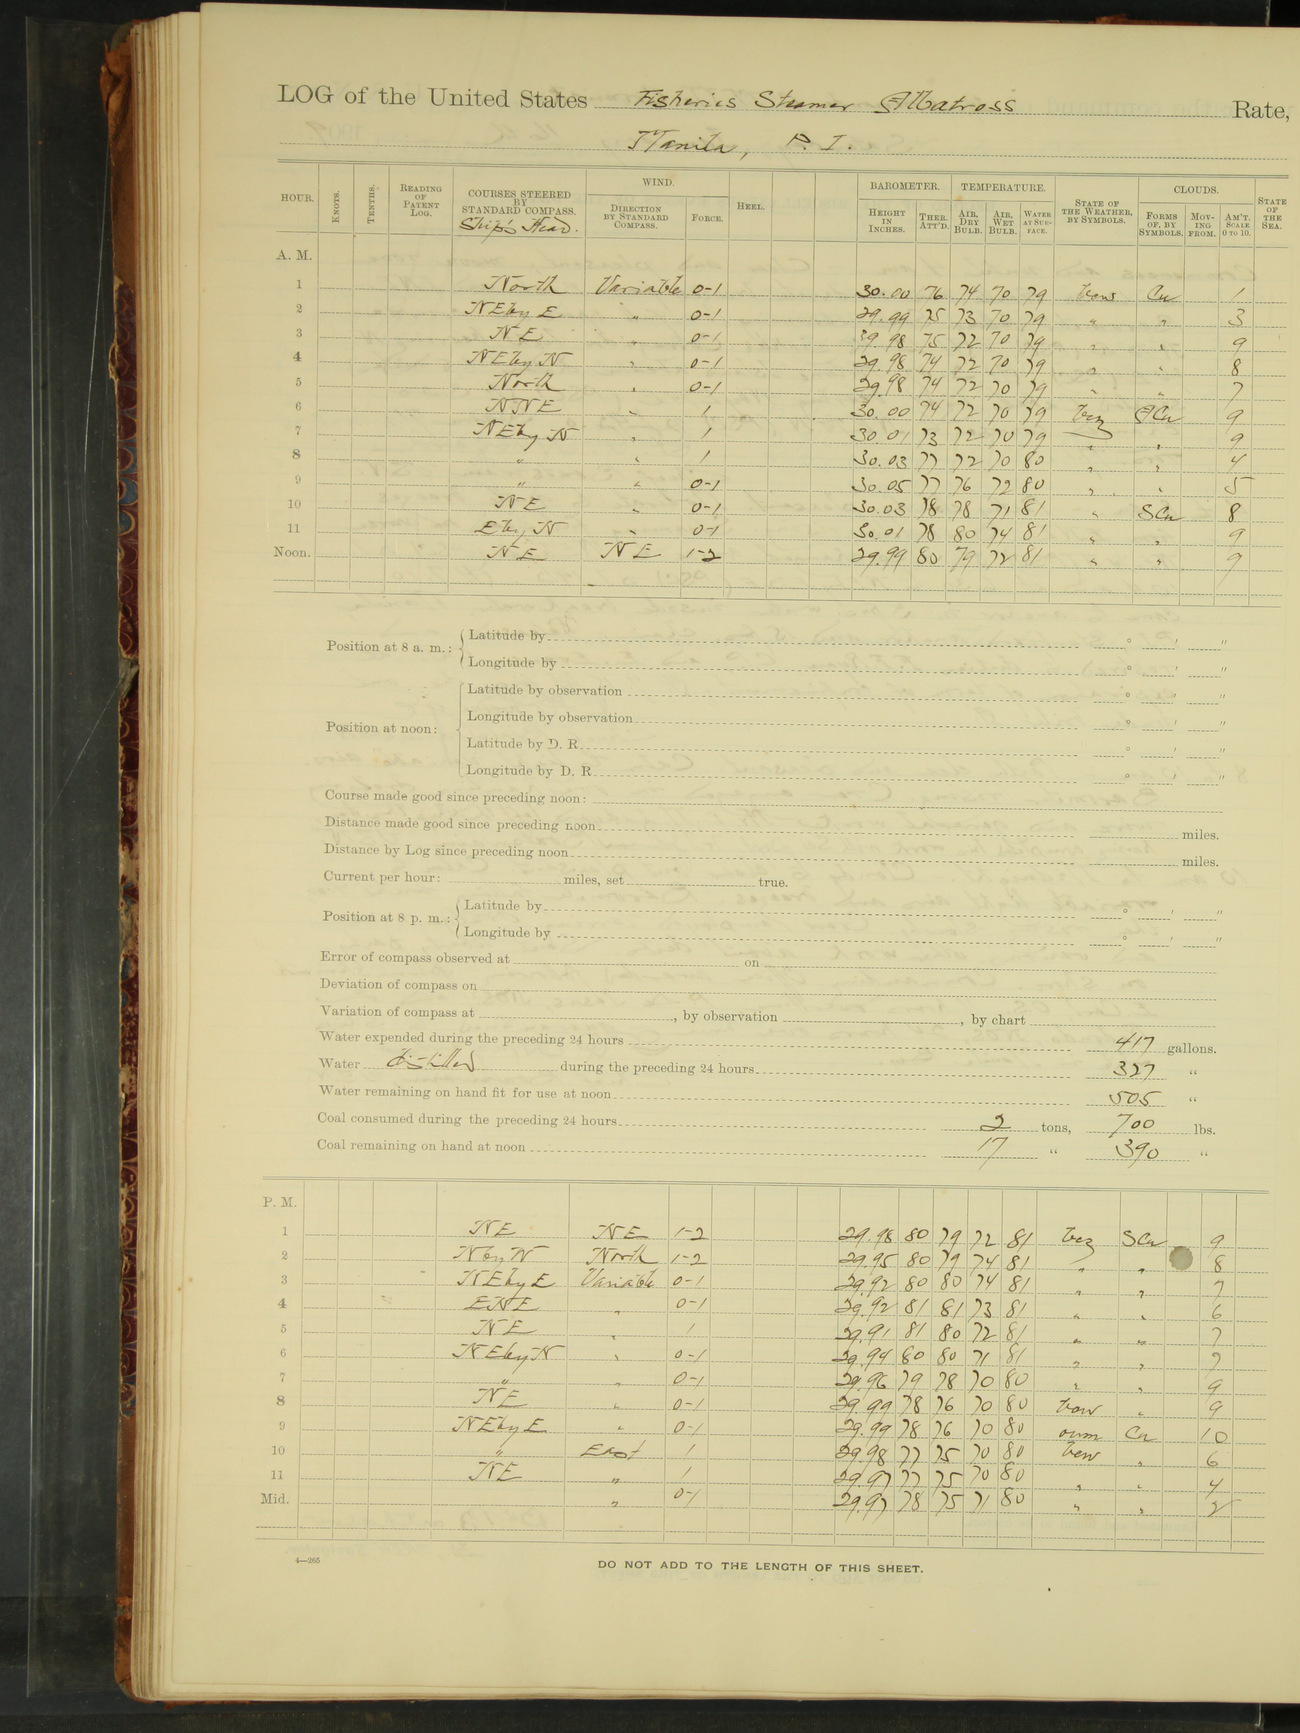 LOG of the United States Fisheries Steamer Albatross Rate,
Manila, P. I.
HOUR. KNOTS. TENTHS. READING OF PATENT LOG. COURSES STEERED BY STANDARD COMPASS. Ship's Head. WIND. DIRECTION BY STANDARD COMPASS. FORCE. HEEL. BAROMETER. HEIGHT IN INCHES. THER. ATT'D. TEMPERATURE. AIR, DRY BULB. AIR, WET BULB. WATER AT SURFACE. STATE OF THE WEATHER, BY SYMBOLS. CLOUDS. FORMS OF, BY SYMBOLS. MOVING FROM. AM'T. SCALE 0 TO 10. STATE OF THE SEA.
A. M.
1 North Variable 0-1 30.00 76 74 70 79 Cu 1
2 NE by E " 0-1 29.99 75 73 70 79 " " 3
3 NE " 0-1 29.98 75 72 70 79 " " 9
4 NE by N " 0-1 29.98 74 72 70 79 " " 8
5 North " 0-1 29.98 74 72 70 79 " " 7
6 NNE " 1 30.00 74 72 70 79 bcz ACu 9
7 NE by N " 1 30.01 73 72 70 79 " " 9
8 " " 1 30.03 77 72 70 80 " " 4
9 " " 0-1 30.05 77 76 72 80 " " 5
10 NE " 0-1 30.03 78 78 71 81 " SCu 8
11 E by N " 0-1 30.01 78 80 74 81 " " 9
Noon. NE NE 1-2 29.99 80 79 72 81 " " 9
Position at 8 a. m.: Latitude by ° ′ ″
Longitude by ° ′ ″
Position at noon: Latitude by observation ° ′ ″
Longitude by observation ° ′ ″
Latitude by D. R. ° ′ ″
Longitude by D. R. ° ′ ″
Course made good since preceding noon:
Distance made good since preceding noon miles.
Distance by Log since preceding noon miles.
Current per hour: miles, set true.
Position at 8 p. m.: Latitude by ° ′ ″
Longitude by ° ′ ″
Error of compass observed at on
Deviation of compass on
Variation of compass at , by observation , by chart
Water expended during the preceding 24 hours 417 gallons.
Water distilled during the preceding 24 hours 327 "
Water remaining on hand fit for use at noon 505 "
Coal consumed during the preceding 24 hours 2 tons, 700 lbs.
Coal remaining on hand at noon 17 " 390 "
P. M.
1 NE NE 1-2 29.98 80 79 72 81 bcz SCu 9
2 N by W North 1-2 29.95 80 79 74 81 " " 8
3 NE by E Variable 0-1 29.92 80 80 74 81 " " 7
4 ENE " 0-1 29.92 81 81 73 81 " " 6
5 NE " 1 29.91 81 80 72 81 " " 7
6 NE by N " 0-1 29.94 80 80 71 81 " " 7
7 " " 0-1 29.96 79 78 70 80 " " 9
8 NE " 0-1 29.99 78 76 70 80 " 9
9 NE by E " 0-1 29.99 78 76 70 80 Cu 10
10 " East 1 29.98 77 75 70 80 " 6
11 NE " 1 29.97 77 75 70 80 " " 4
Mid. " 0-1 29.97 78 75 71 80 " " 2
4—265
DO NOT ADD TO THE LENGTH OF THIS SHEET.